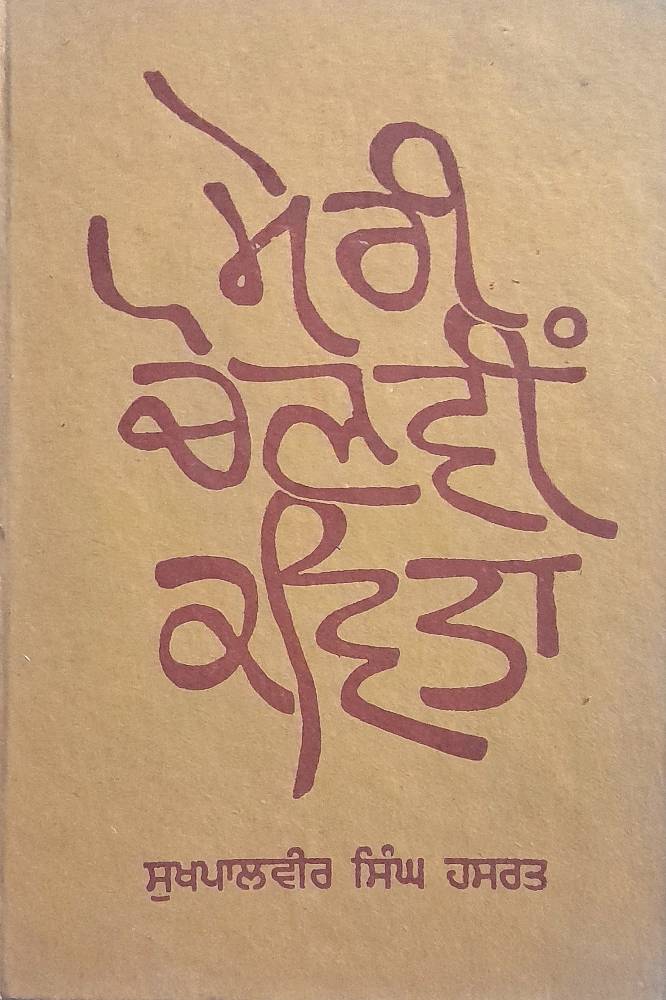 ਮੇਰੀ
ਚੋਣਵੀਂ
ਕਵਿਤਾ
ਸੁਖਪਾਲਵੀਰ ਸਿੰਘ ਹਸਰਤ